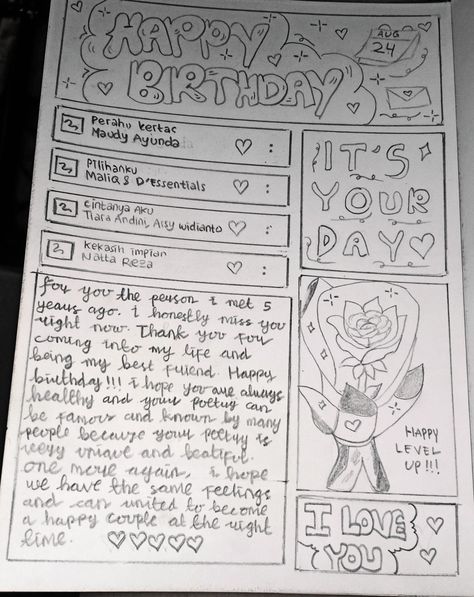 HAPPY
BIRTHDAY
AUG
24
Perahu kertas
Maudy Ayunda
Pilihanku
MaliQ & D'Essentials
Cintanya Aku
Tiara Andini, Arsy widianto
Kekasih impian
Natta Reza
IT'S
YOUR
DAY
for you the person i met 5
years ago. i honestly miss you
right now. Thank you for
coming into my life and
being my best friend. Happy
birthday!!! i hope you are always
healthy and your poetry can
be famous and known by many
people because your poetry is
very unique and beatiful.
one more again, i hope
we have the same feelings
and can united to become
a happy couple at the right
time.
HAPPY
LEVEL
UP!!!
I LOVE
YOU